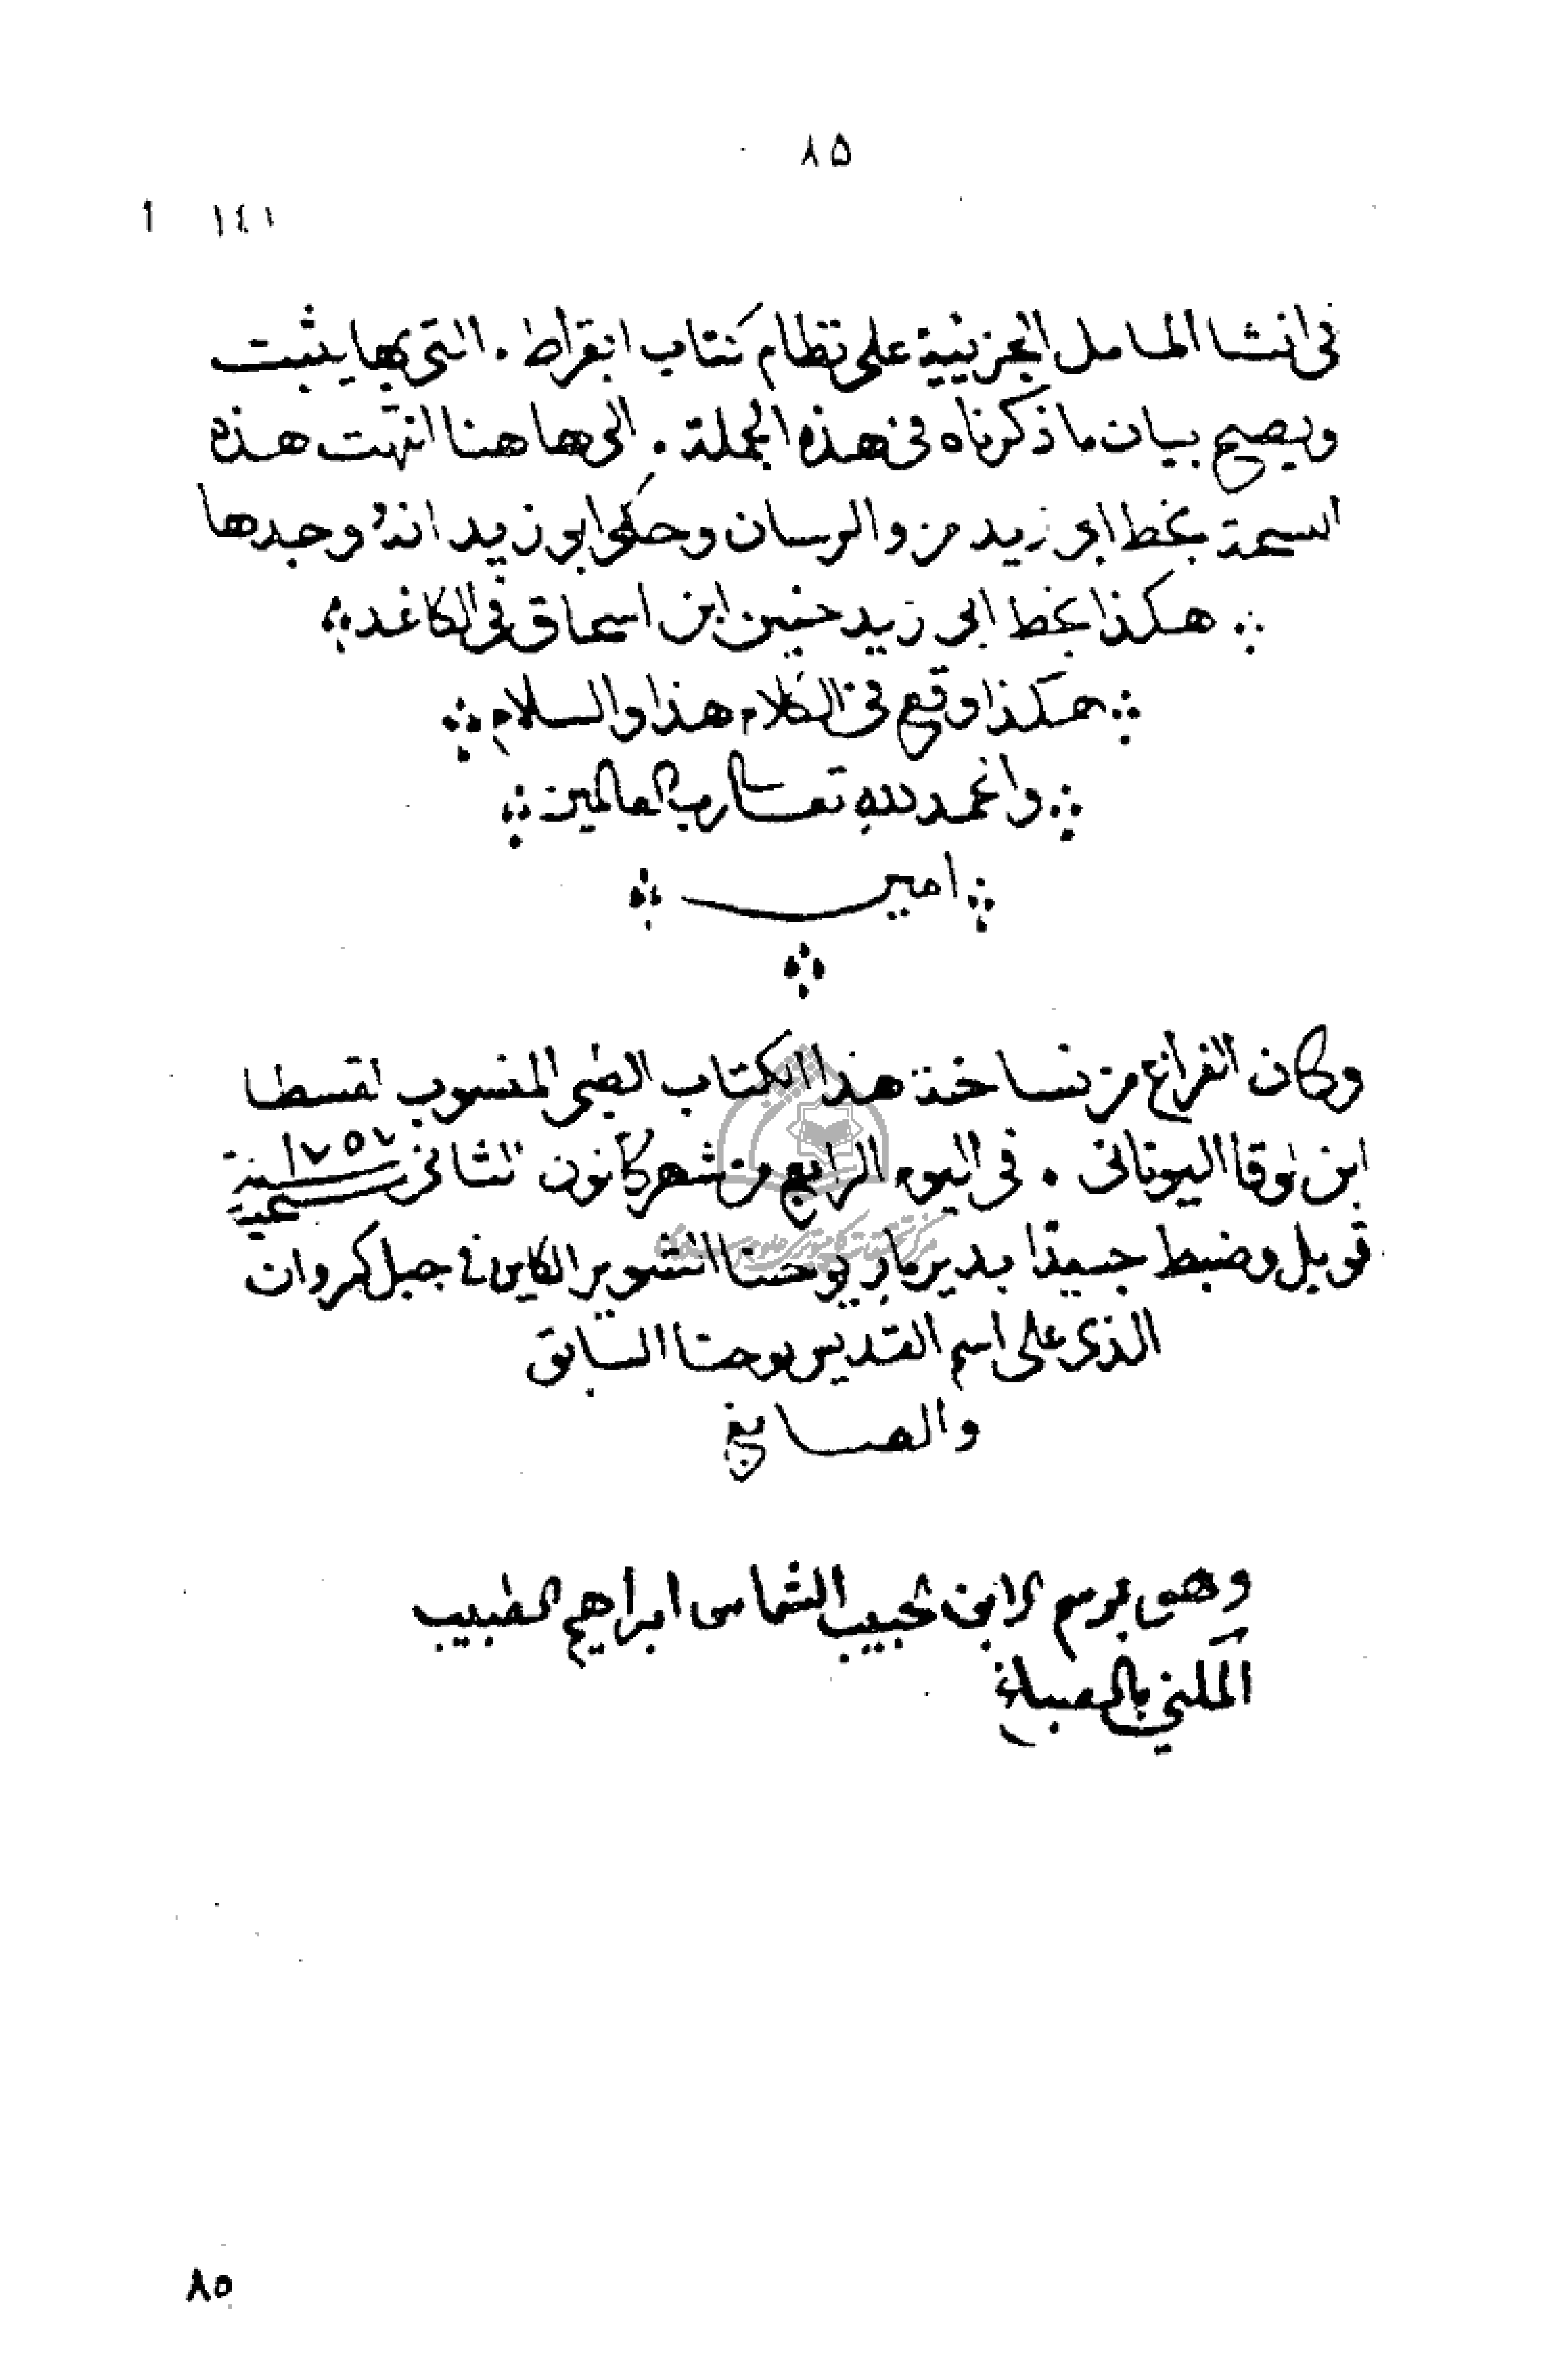 ٨٥
١٤١ ١
فى انشا المسامل الجزييية على نظام كتاب ابقراط . التى بها يثبت
ويصيح بيان ما ذكرناه فى هذه الجملة . الى هاهنا انتهت هذه
بخط ابى زيد من والرسان وحكى ابو زيد انه وجدها
هكذا بخط ابى زيد حنين ابن اسحاق فى الكاغد
هكذا وقع فى الكلام هذا والسلام
والحمد لله تعالى رب العالمين
امين
وكان الفراغ من نساخة هذا الكتاب الطبى المنسوب لقسطا
ابن لوقا اليونانى . فى اليوم الرابع من شهر كانون الثانى سنة ١٧٥٧ مسيحية
قوبل وضبط جيدا بدير مار يوحنا الشوير الكاين فى جبل كسروان
الذى على اسم القديس يوحنا السابق
والصابغ
وهو برسم الابن الحبيب الشماس ابراهيم الطبيب
المكنى بالصباغ
٨٥